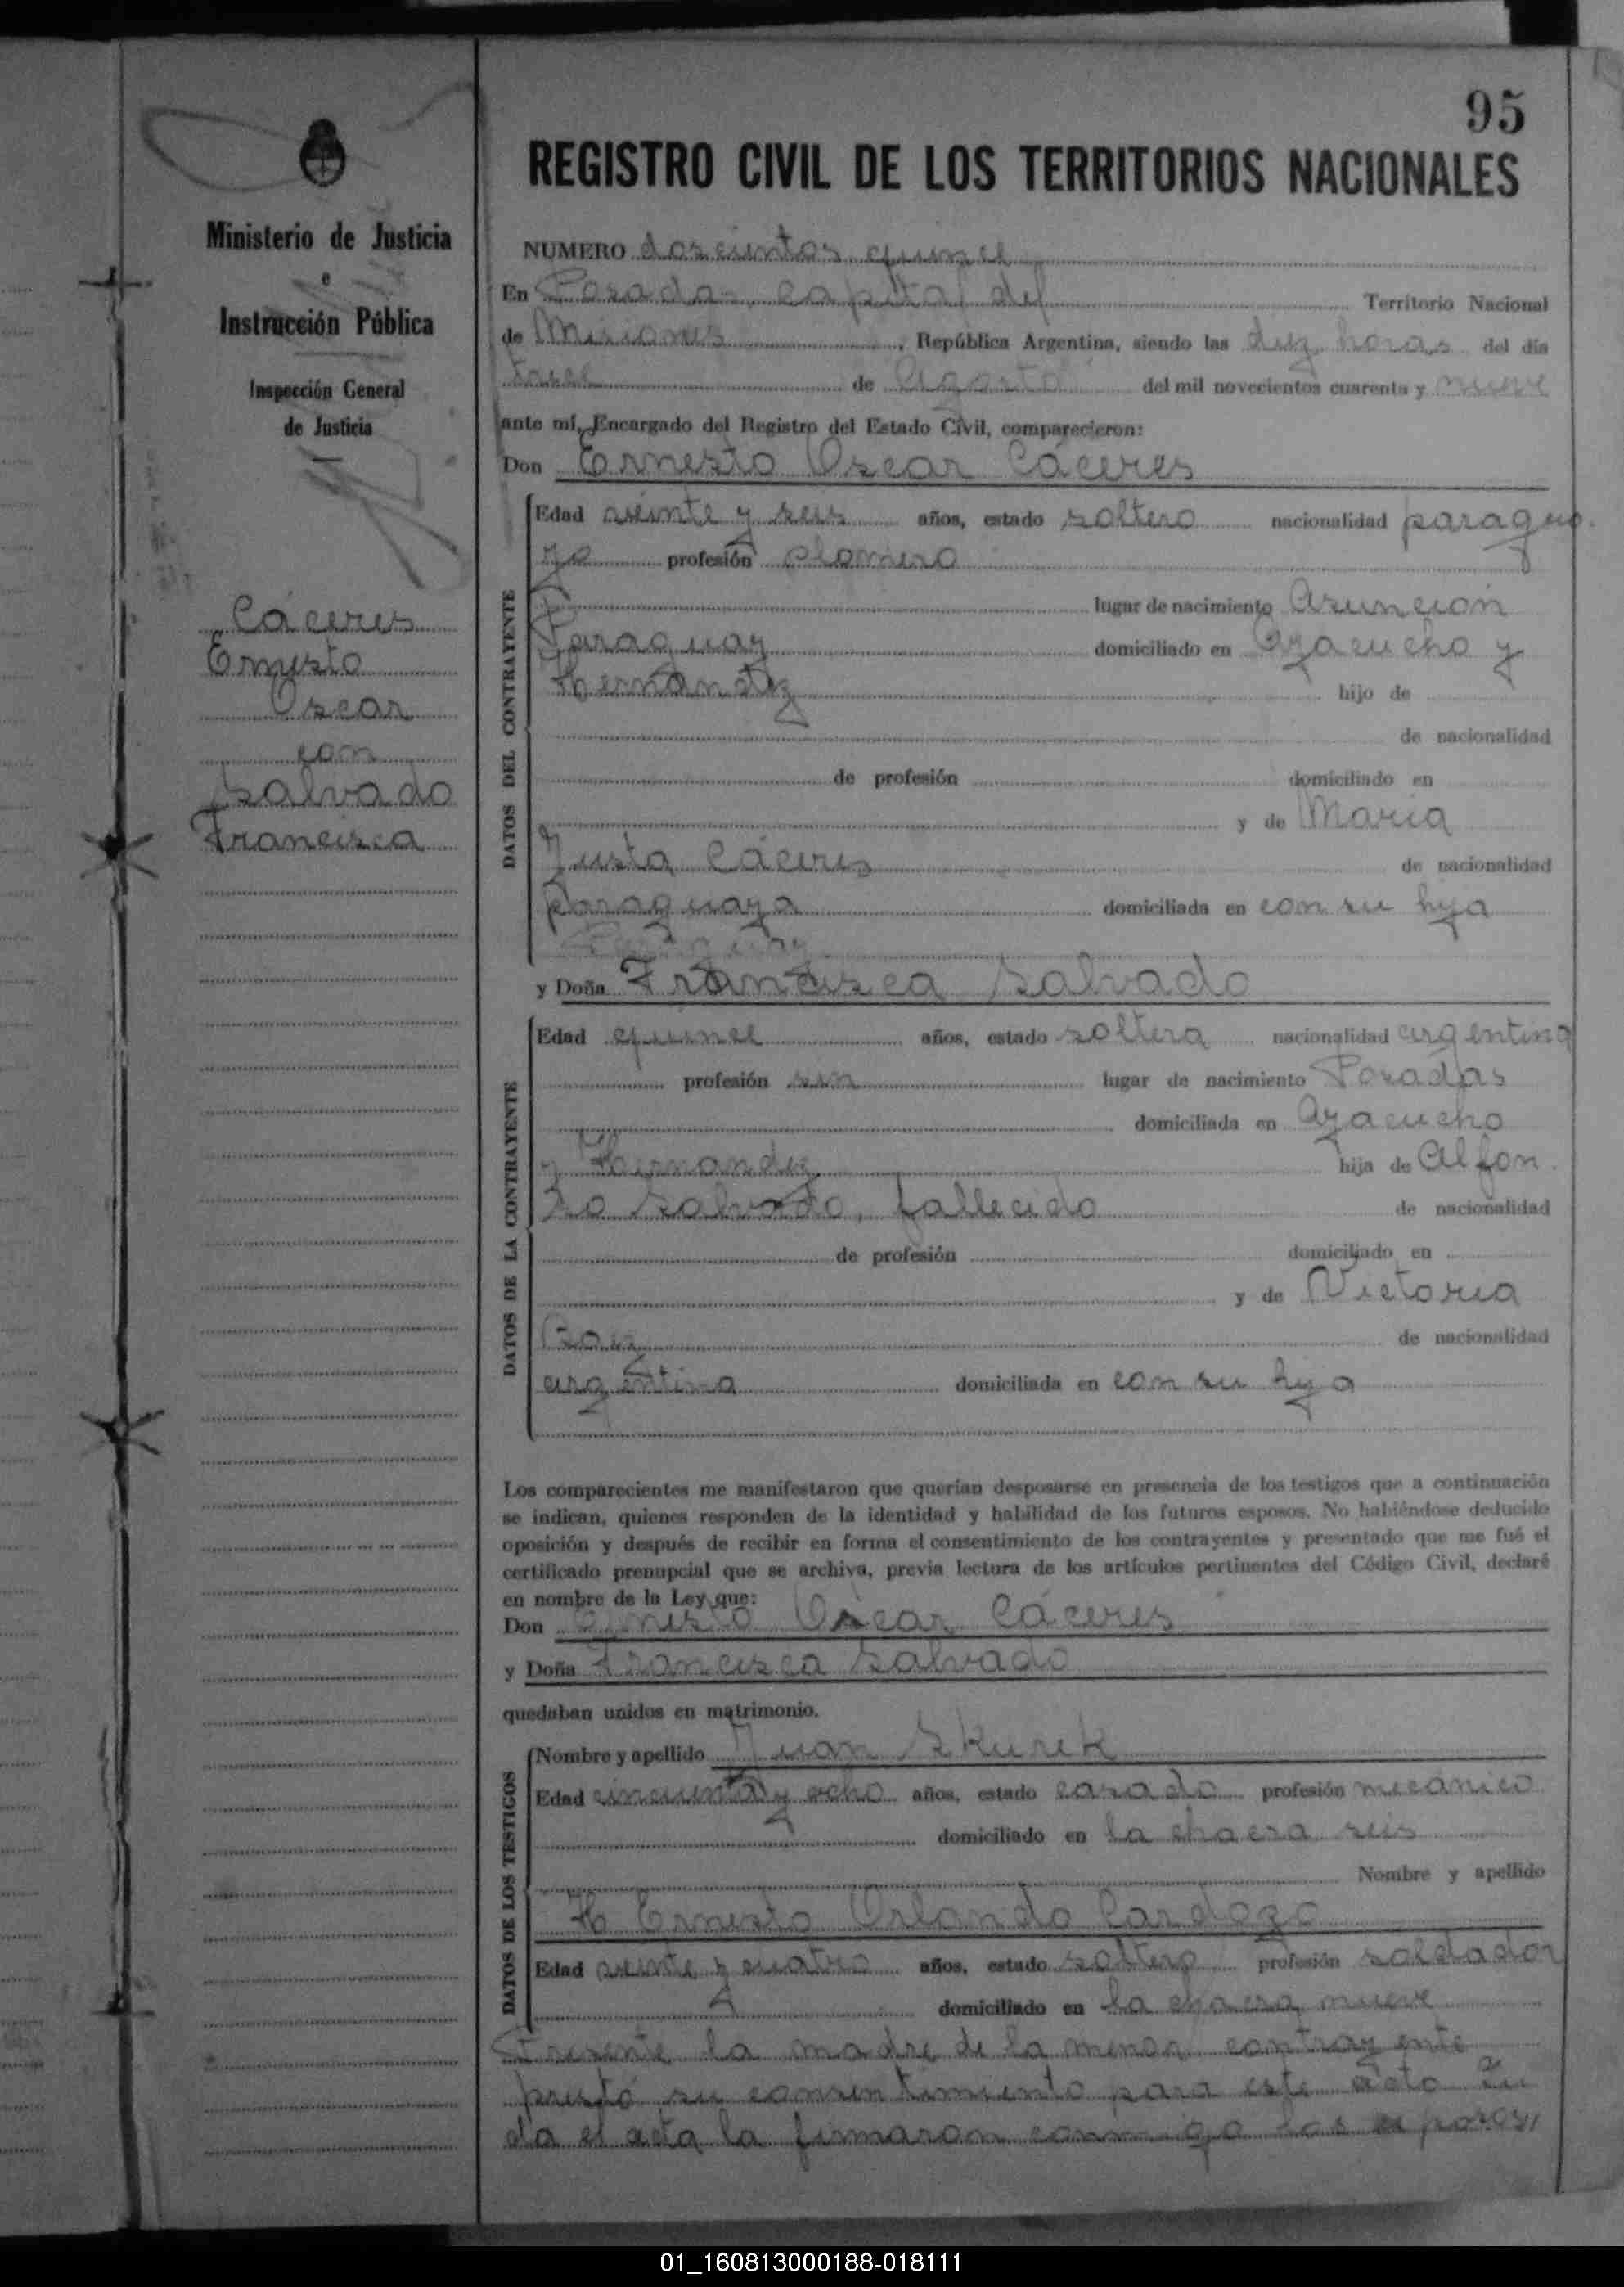 95
REGISTRO CIVIL DE LOS TERRITORIOS NACIONALES
Ministerio de Justicia
e
Instrucción Pública
Inspección General
de Justicia
Cáceres
Ernesto
Oscar
con
Salvado
Francisca
NUMERO doscientos quince
En Posadas, capital del Territorio Nacional
de Misiones, República Argentina, siendo las diez horas del día
trece de Agosto del mil novecientos cuarenta y nueve
ante mí, Encargado del Registro del Estado Civil, comparecieron:
Don Ernesto Oscar Cáceres
DATOS DEL CONTRAYENTE
Edad veinte y seis años, estado soltero nacionalidad paragua
yo profesión plomero
lugar de nacimiento Asunción
Paraguay domiciliado en Ayacucho y
Hernandez hijo de
de nacionalidad
de profesión domiciliado en
y de María
Justa Cáceres de nacionalidad
paraguaya domiciliada en con su hija
y Doña Francisca Salvado
DATOS DE LA CONTRAYENTE
Edad quince años, estado soltera nacionalidad argentina
profesión sin lugar de nacimiento Posadas
domiciliada en Ayacucho
y Hernandez hija de Alfon
so Salvado, fallecido de nacionalidad
de profesión domiciliado en
y de Victoria
de nacionalidad
argentina domiciliada en con su hija
Los comparecientes me manifestaron que querían desposarse en presencia de los testigos que a continuación
se indican, quienes responden de la identidad y habilidad de los futuros esposos. No habiéndose deducido
oposición y después de recibir en forma el consentimiento de los contrayentes y presentado que me fué el
certificado prenupcial que se archiva, previa lectura de los artículos pertinentes del Código Civil, declaré
en nombre de la Ley que:
Don Ernesto Oscar Cáceres
y Doña Francisca Salvado
quedaban unidos en matrimonio.
DATOS DE LOS TESTIGOS
Nombre y apellido Juan Skurek
Edad cincuenta y ocho años, estado casado profesión mecánico
domiciliado en la chacra seis
Nombre y apellido
Ernesto Orlando Cardozo
Edad veinte y cuatro años, estado soltero profesión soldador
domiciliado en la chacra nueve
Presente la madre de la menor contrayente
prestó su consentimiento para este acto Leí
da el acta la firmaron conmigo los esposos,
01_160813000188-018111